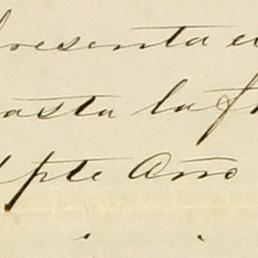 presenta e
hasta la f
l pte Año